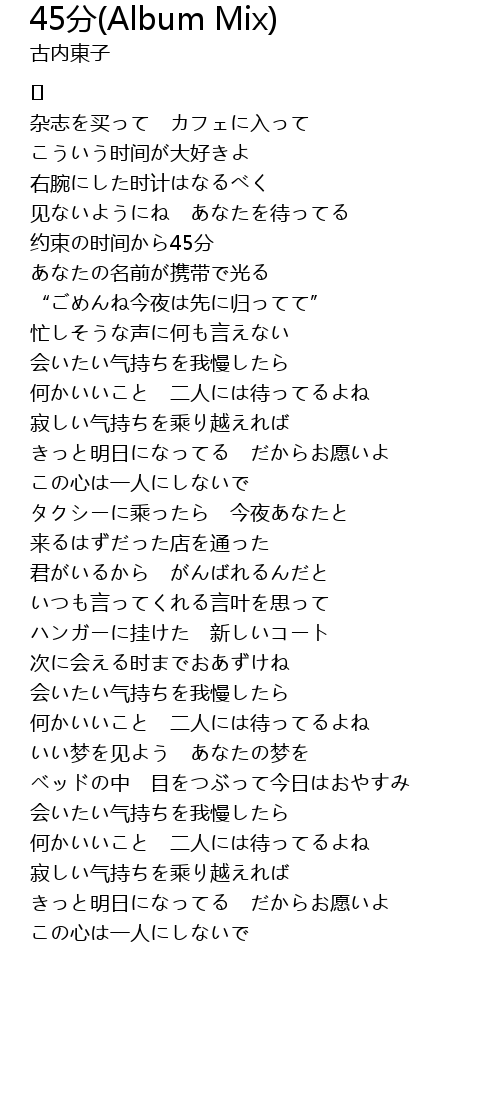 45分(Album Mix)
古内東子
[]
杂志を买って　カフェに入って
こういう时间が大好きよ
右腕にした时计はなるべく
见ないようにね　あなたを待ってる
约束の时间から45分
あなたの名前が携带で光る
“ごめんね今夜は先に归ってて”
忙しそうな声に何も言えない
会いたい气持ちを我慢したら
何かいいこと　二人には待ってるよね
寂しい气持ちを乘り越えれば
きっと明日になってる　だからお愿いよ
この心は一人にしないで
タクシーに乘ったら　今夜あなたと
来るはずだった店を通った
君がいるから　がんばれるんだと
いつも言ってくれる言叶を思って
ハンガーに挂けた　新しいコート
次に会える时までおあずけね
会いたい气持ちを我慢したら
何かいいこと　二人には待ってるよね
いい梦を见よう　あなたの梦を
ベッドの中　目をつぶって今日はおやすみ
会いたい气持ちを我慢したら
何かいいこと　二人には待ってるよね
寂しい气持ちを乘り越えれば
きっと明日になってる　だからお愿いよ
この心は一人にしないで